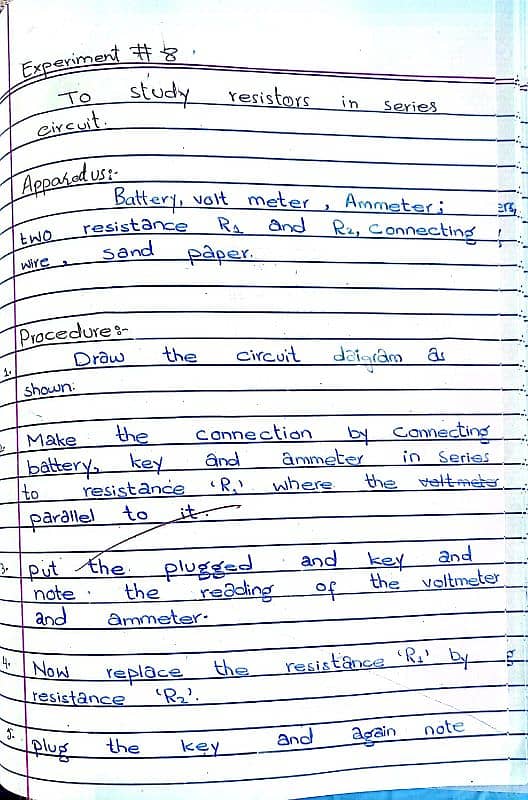 Experiment # 8.
To study resistors in series
circuit.
Apparatus:-
Battery, volt meter, Ammeter;
two resistance R1 and R2, Connecting
wire, sand paper.
Procedure:-
1. Draw the circuit daigram as
shown.
Make the connection by connecting
battery, key and ammeter in series
to resistance 'R1' where the voltmeter
parallel to it.
3. put the plugged and key and
note . the reading of the voltmeter
and ammeter.
4. Now replace the resistance 'R1' by
resistance 'R2'.
5. plug the key and again note